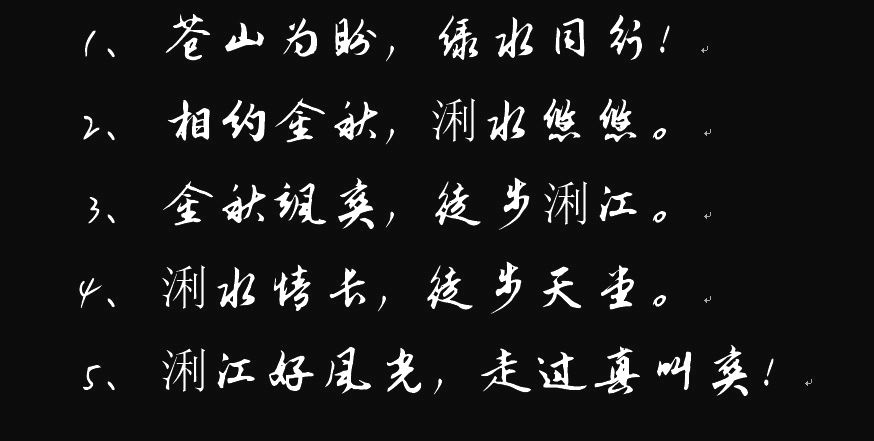 1、 苍山为盼，绿水同行！
2、 相约金秋，浰水悠悠。
3、 金秋飒爽，徒步浰江。
4、 浰水情长，徒步天堂。
5、 浰江好风光，走过真叫爽！